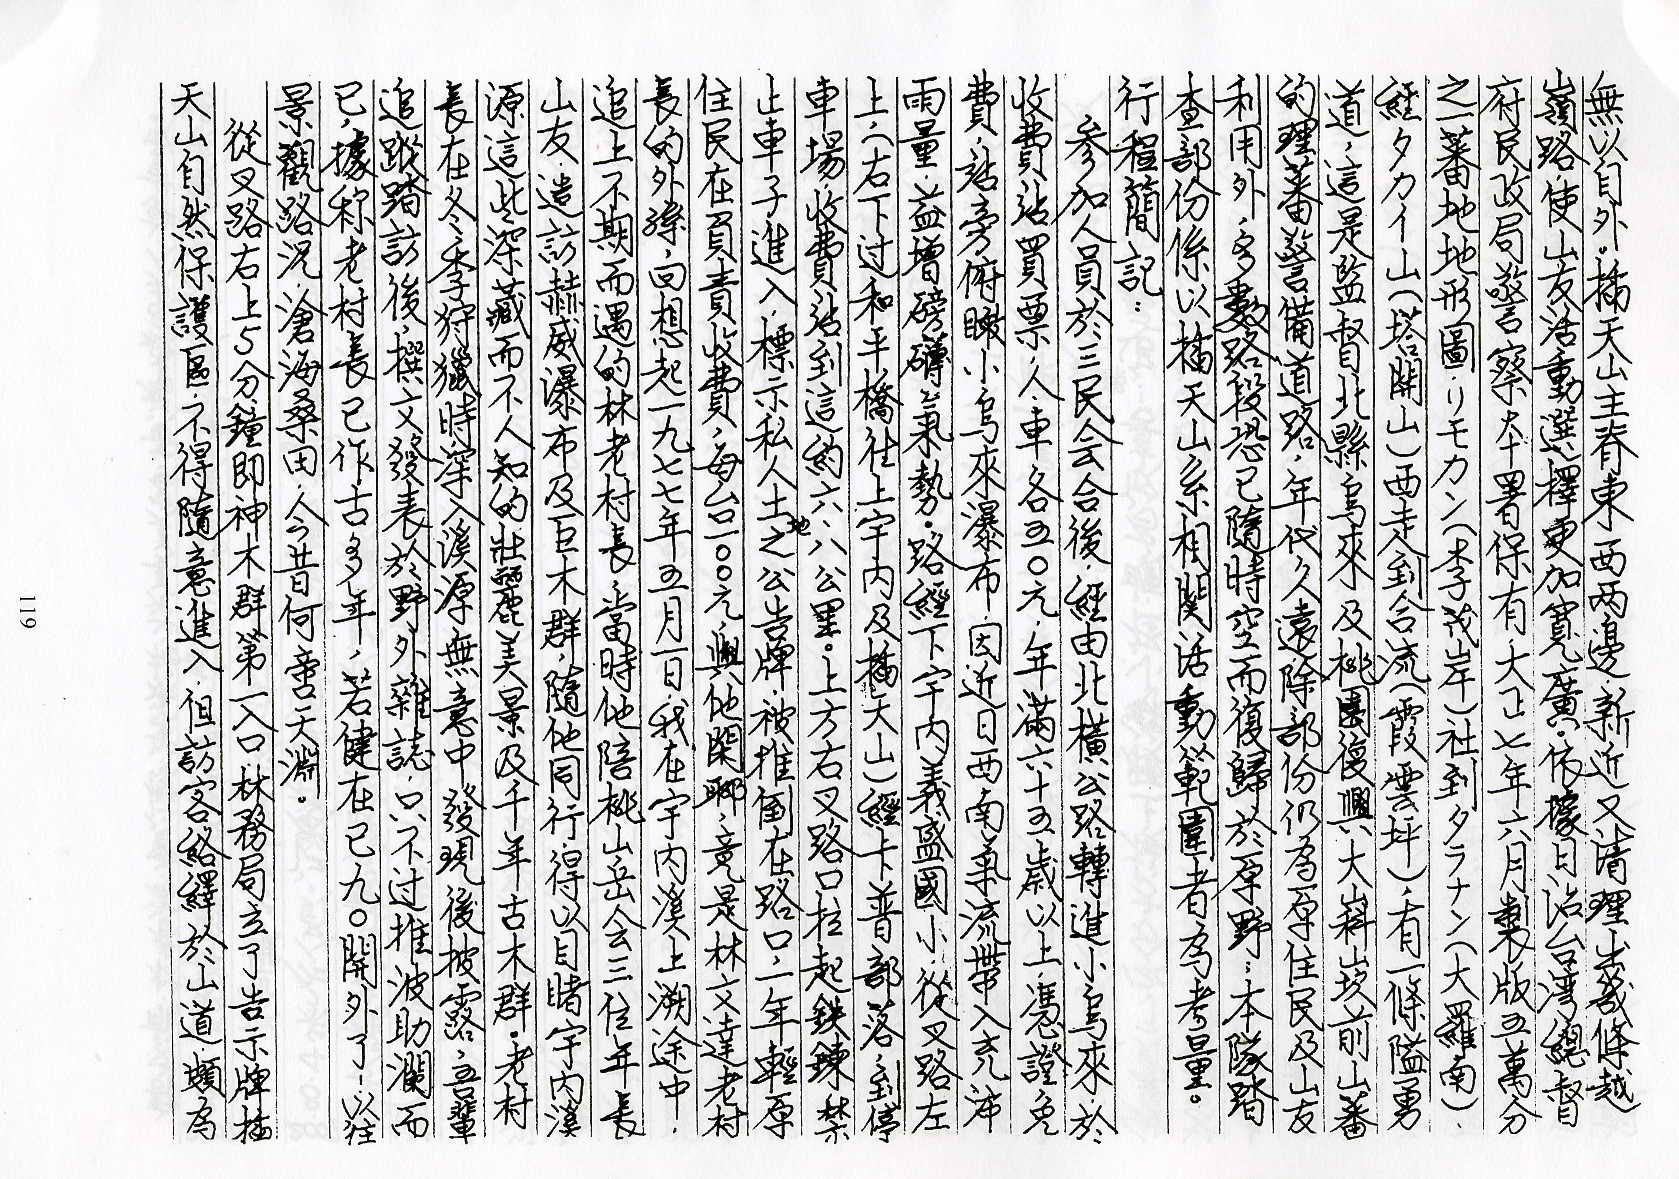 無以自外。插天山主脊東西兩邊新近又清理出幾條越
嶺路,使山友活動選擇更加寬廣。依據日治台湾總督
府民政局警察大十署保有,大正七年六月製版五萬分
之一蕃地地形圖,リモカン(李茂岸)社到タラナン(大羅南)、
經タカイ山(塔開山)西走到合流(霞雲坪),有一條隘勇
道,這是監督北縣烏來及桃園復興大嵙崁前山蕃
的理蕃警備道路,年代久遠除部份仍為原住民及山友
利用外,多數路段恐已隨時空而復歸於原野;本隊踏
查部份係以插天山系相関活動範圍者為考量。
行程簡記:
參加人員於三民会合後,經由北橫公路轉進小烏來,於
收費站買票,人、車各五0元,年滿六十五歲以上,憑證免
費,站旁俯瞰小烏來瀑布,因近日西南氣流帶入充沛
雨量,益增磅礡氣勢。路經下宇內義盛國小,從叉路左
上,(右下过和平橋往上宇內及插天山)經卡普部落,到停
車場,收費站到這約六.八公里。上方右叉路口拉起鉄鍊禁
止車子進入,標示私人土地之公告牌,被推倒在路口,一年輕原
住民在負責收費,每台一00元,與他閑聊,竟是林文達老村
長的外孫,回想起一九七七年五月一日,我在宇內溪上溯途中,
追上不期而遇的林老村長,當時他陪桃山岳会三位年長
山友,造訪赫威瀑布及巨木群,隨他同行,得以目睹宇內溪
源這些深藏而不人知的壯麗美景及千年古木群。老村
長在冬季狩獵時深入溪源無意中發現後披露,吾輩
追蹤踏訪後,撰文發表於野外雜誌,只不过推波助瀾而
已,據称老村長已作古多年,若健在已九0開外了!以往
景觀路況,滄海桑田,人今昔何啻天淵。
從叉路右上5分鐘即神木群第一入口,林務局立了告示牌插
天山自然保護區,不得隨意進入,但訪客絡繹於山道頗為
119